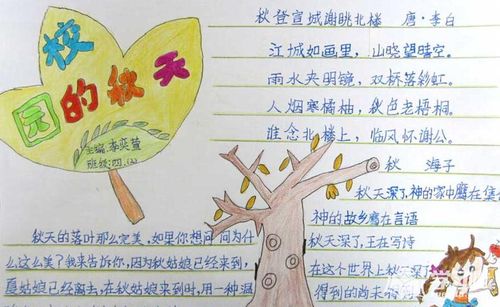 校园的秋天
主编:李奕萱
班级:四.
秋登宣城谢眺北楼 唐·李白
江城如画里，山晓望晴空。
雨水夹明镜，双桥落彩虹。
人烟寒橘柚，秋色老梧桐。
谁念北楼上，临风怀谢公。
秋 海子
秋天深了,神的家中鹰在集
神的故乡鹰在言语
秋天深了,王在写诗
在这个世界上秋天深
得到的尚未
秋天的落叶那么完美,如果你想问问为什
么这么美?我来告诉你,因为秋姑娘已经来到,
夏姑娘已经离去,在秋姑娘来到时,用一种温